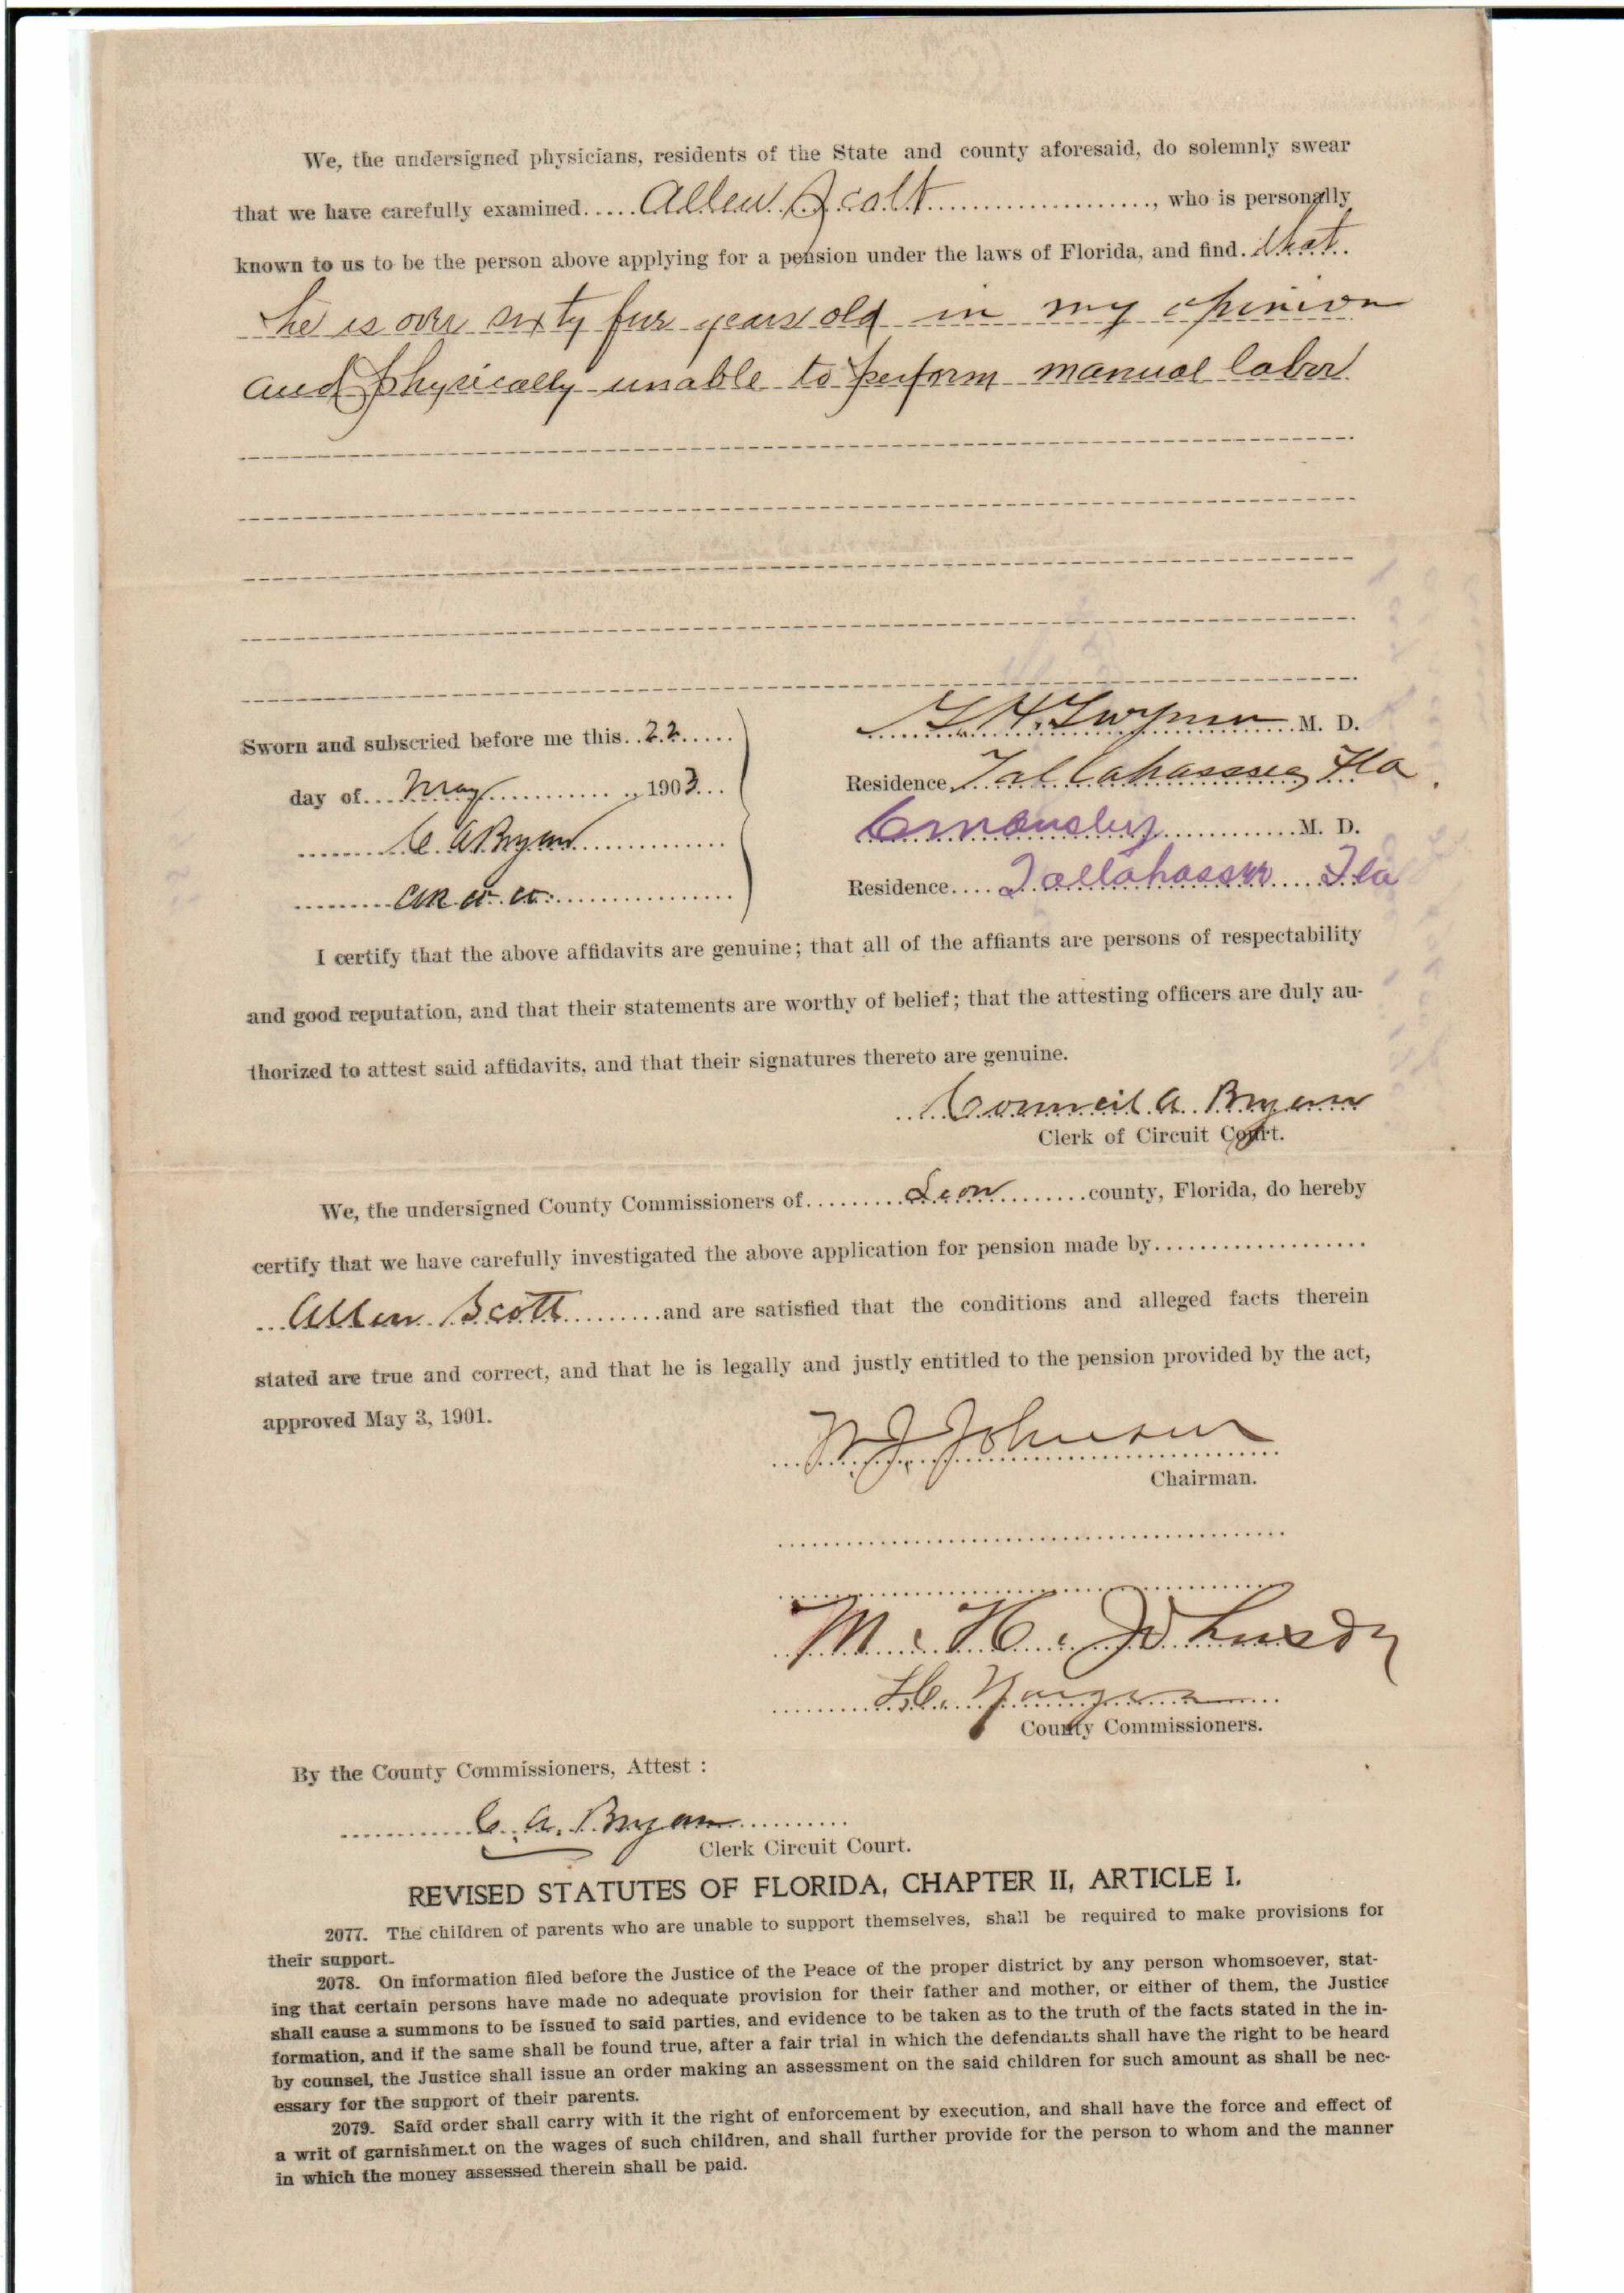 We, the undersigned physicians, residents of the State and county aforesaid, do solemnly swear
that we have carefully examined.....Allen Scott...................., who is personally
known to us to be the person above applying for a pension under the laws of Florida, and find. that.
he is over sixty fur years old in my opinion
and physically unable to perform manual labor
Sworn and subscried before me this..22.....
day of....May.............., 1903...
C. A Bryan
M. D.
Residence Tallahassee Fla.
M. D.
Residence....Tallahassee....Fla
I certify that the above affidavits are genuine; that all of the affiants are persons of respectability
and good reputation, and that their statements are worthy of belief; that the attesting officers are duly au-
thorized to attest said affidavits, and that their signatures thereto are genuine.
Council A. Bryan
Clerk of Circuit Court.
We, the undersigned County Commissioners of.........Leon.........county, Florida, do hereby
certify that we have carefully investigated the above application for pension made by...................
...Allen Scott.........and are satisfied that the conditions and alleged facts therein
stated are true and correct, and that he is legally and justly entitled to the pension provided by the act,
approved May 3, 1901.
Johnson
Chairman.
M. H. Johnson
H.
County Commissioners.
By the County Commissioners, Attest :
C. A. Bryan
Clerk Circuit Court.
REVISED STATUTES OF FLORIDA, CHAPTER II, ARTICLE I.
2077. The children of parents who are unable to support themselves, shall be required to make provisions for
their support.
2078. On information filed before the Justice of the Peace of the proper district by any person whomsoever, stat-
ing that certain persons have made no adequate provision for their father and mother, or either of them, the Justice
shall cause a summons to be issued to said parties, and evidence to be taken as to the truth of the facts stated in the in-
formation, and if the same shall be found true, after a fair trial in which the defendants shall have the right to be heard
by counsel, the Justice shall issue an order making an assessment on the said children for such amount as shall be nec-
essary for the support of their parents.
2079. Said order shall carry with it the right of enforcement by execution, and shall have the force and effect of
a writ of garnishment on the wages of such children, and shall further provide for the person to whom and the manner
in which the money assessed therein shall be paid.